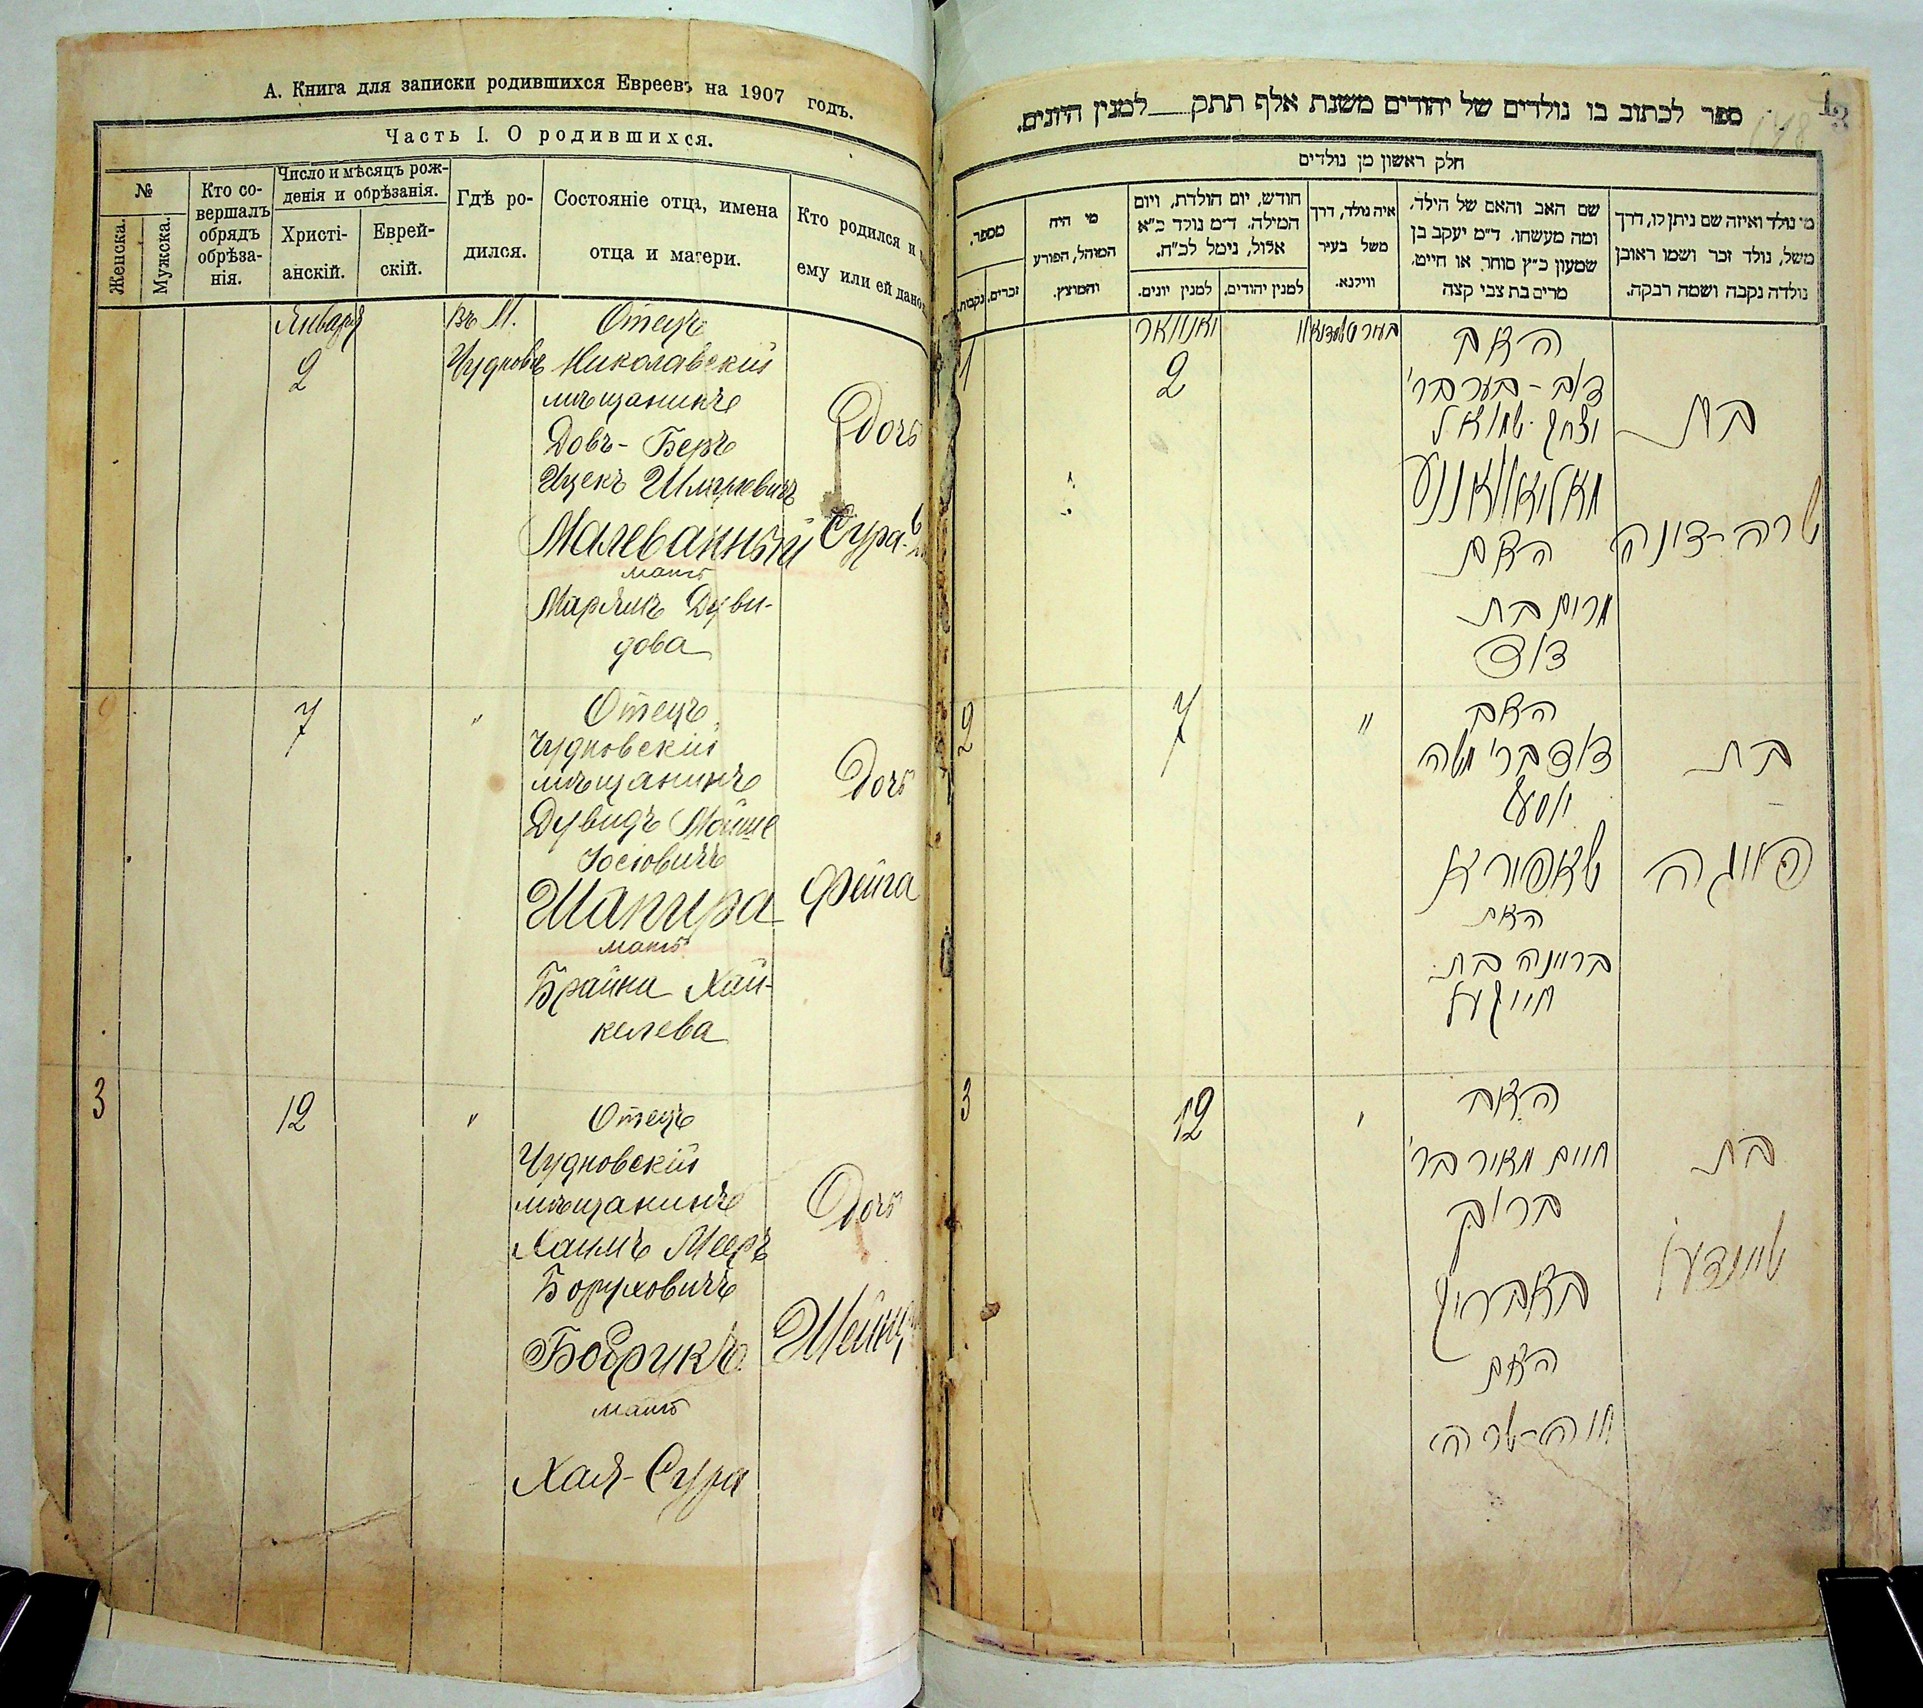 А. Книга для записки родившихся Евреевъ на 1907 годъ.
Часть I. О родившихся.
№
Женска.
Мужска.
Кто со-
вершалъ
обрядъ
обрѣза-
нія.
Число и мѣсяцъ рож-
денія и обрѣзанія.
Христі-
анскій.
Еврей-
скій.
Гдѣ ро-
дился.
Состояніе отца, имена
отца и матери.
Кто родился и
ему или ей дано
Января
2
Въ М.
Чудновѣ
Отецъ
Николаевскій
мѣщанинъ
Довъ-Беръ
Ицекъ Шмулевичъ
Малеванный
мать
Марьямъ Дуви-
дова
Дочь
Сура-
7
"
Отецъ
Чудновскій
мѣщанинъ
Дувидъ Мойше
Іосіовичъ
Шапира
мать
Брайна Хай-
келева
Дочь
Фейга
3
12
"
Отецъ
Чудновскій
мѣщанинъ
Хаимъ Мееръ
Боруховичъ
Бобрикъ
мать
Хая-Сура
Дочь
ספר לכתוב בו נולדים של יהודים משנת אלף תתק___למנין היונים.
חלק ראשון מן נולדים
מי נולד ואיזה שם ניתן לו, דרך
משל, נולד זכר ושמו ראובן
נולדה נקבה ושמה רבקה.
שם האב והאם של הילד,
ומה מעשהו. ד״מ יעקב בן
שמעון כ״ץ סוחר או חייט,
מרים בת צבי קצה
איה נולד, דרך
משל בעיר
ווילנא.
חודש, יום הולדת, ויום
המילה. ד״מ נולד כ״א
אלול, נימל לכ״ח.
למנין יהודים.
למנין יונים.
מי היה
המוהל, הפורע
והמוצץ.
מספר.
זכרים.
נקבות.
1
יאנוואר
2
האב
דוב-בער בר'
יצחק שמואל
האם
מרים בת
דוד
בת
שרה-דונה
2
7
"
האב
דוד בר' משה
יוסף
שאפירא
האם
בריינה בת
חייקעל
בת
פייגה
3
12
"
האב
חיים מאיר בר'
ברוך
באבריק
האם
חיה-שרה
בת
שיינדעל